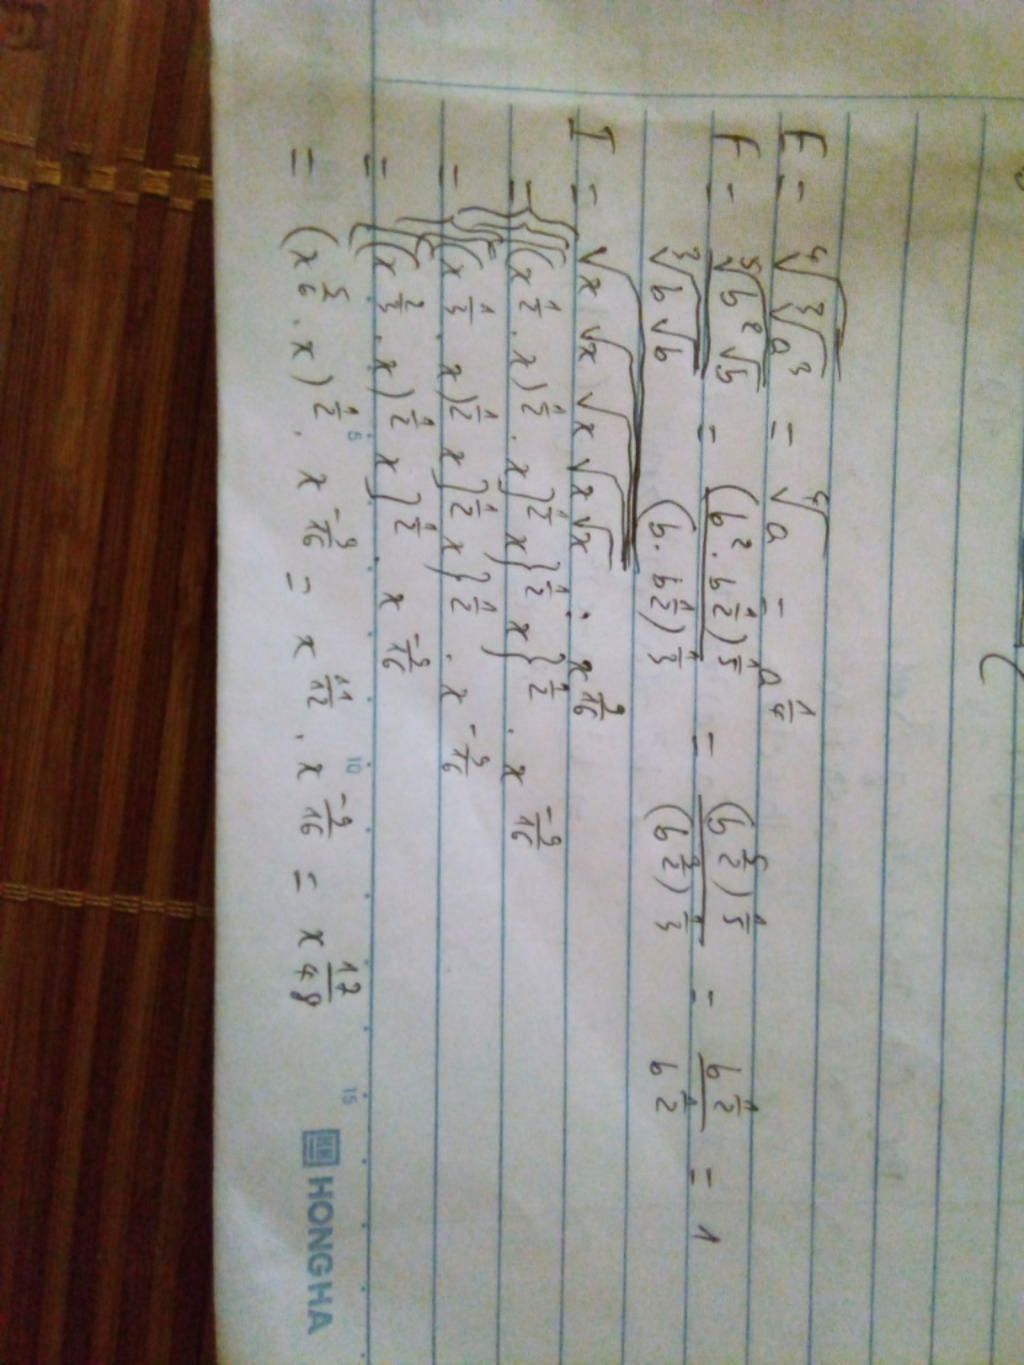 E = ∜(∛(a³)) = ∜a = a^(1/4)
F = ⁵√(b²√b) / ∛(b√b) = (b² . b^(1/2))^(1/5) / (b . b^(1/2))^(1/3) = (b^(5/2))^(1/5) / (b^(3/2))^(1/3) = b^(1/2) / b^(1/2) = 1
I = √(x√(x√(x√(x√x)))) : x^(9/16)
= {{[(x^(1/2) . x)^(1/2) . x]^(1/2) x}^(1/2) x}^(1/2) . x^(-9/16)
= {[(x^(1/3) . x)^(1/2) x]^(1/2) x}^(1/2) . x^(-9/16)
= [(x^(2/3) . x)^(1/2) x]^(1/2) . x^(-9/16)
= (x^(5/6) . x)^(1/2) . x^(-9/16) = x^(11/12) . x^(-9/16) = x^(17/48)
5 10 15
HONG HA